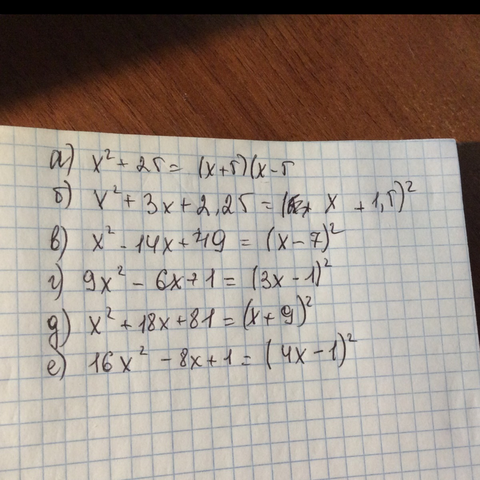 а) x² + 25 = (x+5)(x-5
б) x² + 3x + 2,25 = ( x + 1,5)²
в) x² - 14x + 49 = (x-7)²
г) 9x² - 6x + 1 = (3x-1)²
д) x² + 18x + 81 = (x+9)²
е) 16x² - 8x + 1 = (4x-1)²